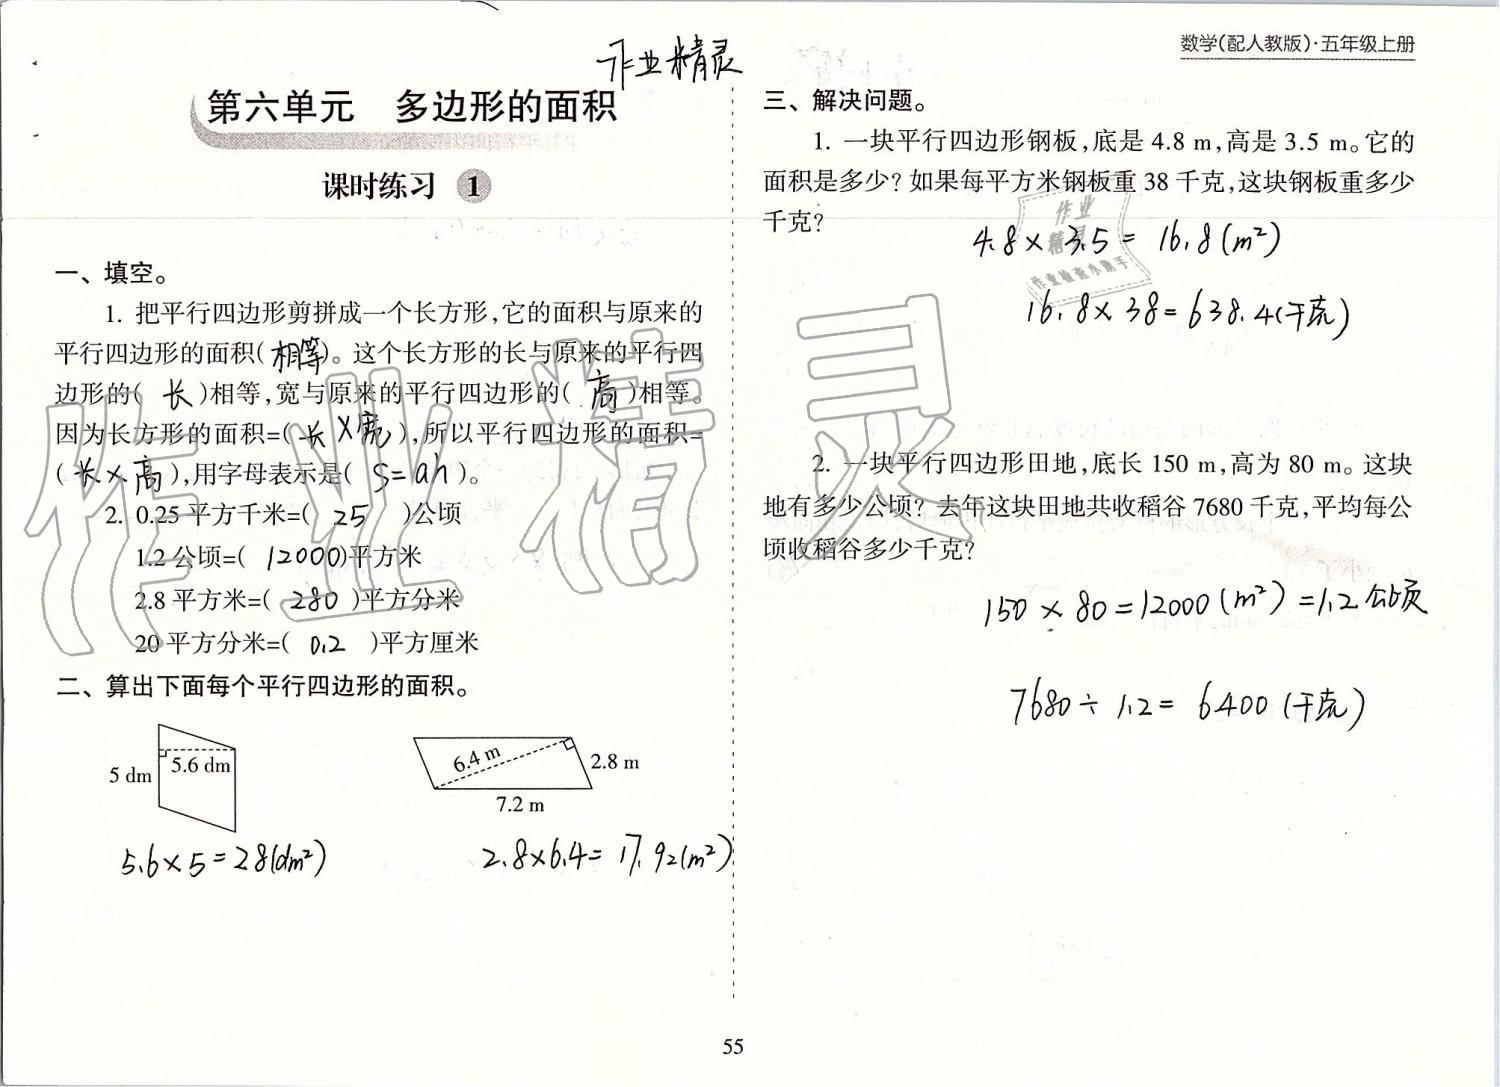 作业精灵
数学(配人教版)·五年级上册
第六单元 多边形的面积
课时练习 1
一、填空。
1. 把平行四边形剪拼成一个长方形,它的面积与原来的
平行四边形的面积(相等)。这个长方形的长与原来的平行四
边形的(长)相等,宽与原来的平行四边形的(高)相等。
因为长方形的面积=(长×宽),所以平行四边形的面积=
(长×高),用字母表示是(S=ah)。
2. 0.25平方千米=(25)公顷
1.2公顷=(12000)平方米
2.8平方米=(280)平方分米
20平方分米=(0.2)平方厘米
二、算出下面每个平行四边形的面积。
5 dm
5.6 dm
6.4 m
2.8 m
7.2 m
5.6×5=28(dm²)
2.8×6.4=17.92(m²)
三、解决问题。
1. 一块平行四边形钢板,底是4.8 m,高是3.5 m。它的
面积是多少?如果每平方米钢板重38千克,这块钢板重多少
千克?
4.8×3.5=16.8(m²)
16.8×38=638.4(千克)
作业
精灵
作业检查小助手
2. 一块平行四边形田地,底长150 m,高为80 m。这块
地有多少公顷?去年这块田地共收稻谷7680千克,平均每公
顷收稻谷多少千克?
150×80=12000(m²)=1.2公顷
7680÷1.2=6400(千克)
作业精灵
55